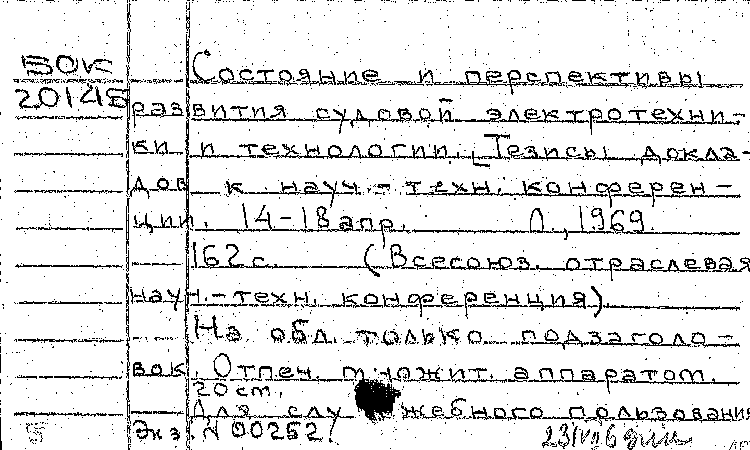 ВОК
20145
Состояние и перспективы
развития судовой электротехни-
ки и технологии. [Тезисы докла-
дов к науч.-техн. конферен-
ции. 14-18 апр. Л., 1969.
162 с. (Всесоюз. отраслевая
науч.-техн. конференция).
На обл. только подзаголо-
вок. Отпеч. множит. аппаратом.
20 см.
Для служебного пользования
Экз. № 00252.
5